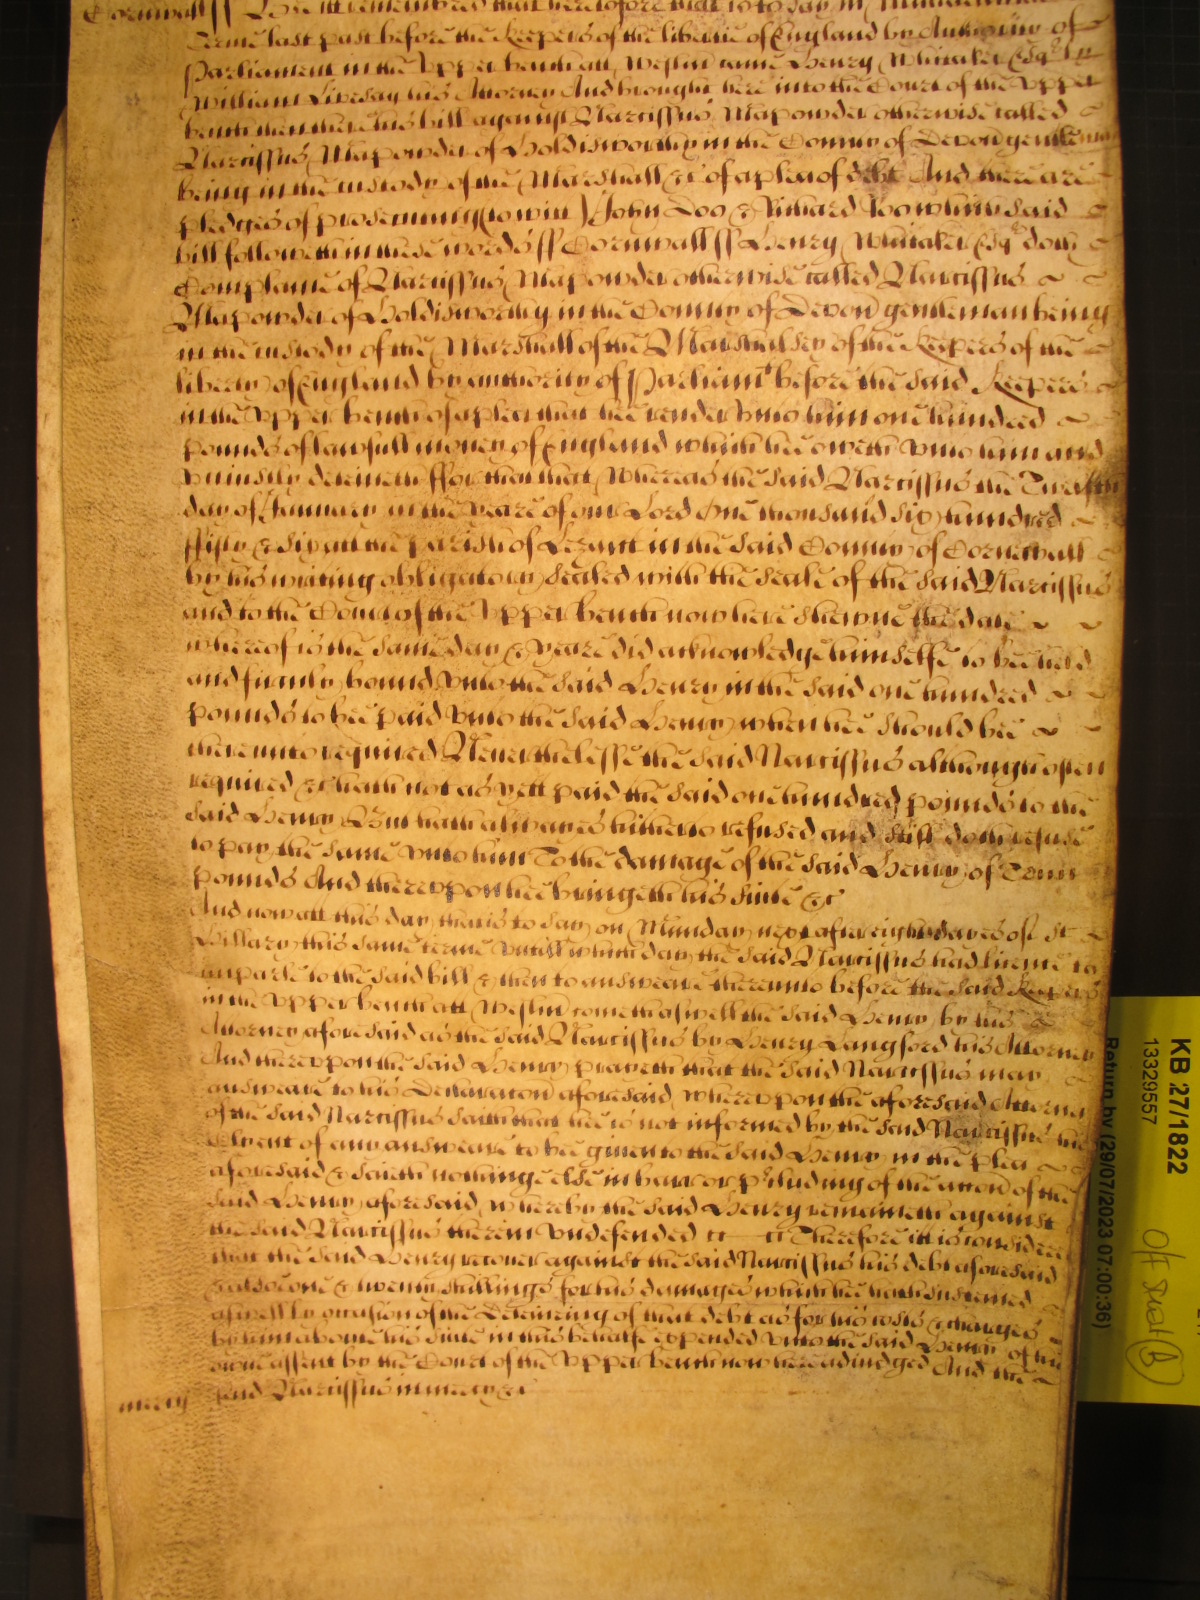 Cornwall ss Bee itt remembred that heretofore that is to say in
Terme last past before the Keepers of the libertie of England by Authority of
Parliament in the Upper bench att Westmr came Henry Whitaker Esqr by
William Livesay his Attorney And brought here into the Court of the Upper
bench then there his bill against Narcissus Mapowder otherwise called
Narcissus Mapowder of Holdisworthy in the County of Devon gentleman
being in the custody of the Marshall &c of a plea of debt And there are
pledges of prosecuting (to witt) John Doo & Richard Roo which said
bill followeth in these words ss Cornwall ss Henry Whitaker Esqr doth
Complaine of Narcissus Mapowder otherwise called Narcissus
Mapowder of Holdisworthy in the County of Devon gentleman being
in the custody of the Marshall of the Marshalsey of the Keepers of the
liberty of England by authority of Parliamt before the said Keepers
in the Upper bench of a plea that hee render unto him one hundred
pounds of lawfull money of England which hee oweth unto him and
uniustly deteineth ffor that that Whereas the said Narcissus the Twelfth
day of January in the yeare of our Lord One thousand six hundred
ffifty & six att the parish of Lezant in the said County of Cornewall
by his writing obligatory sealed with the seale of the said Narcissus
and to the Court of the Upper bench now here shewne the date
whereof is the same day & yeare did acknowledge himselfe to bee held
and firmly bound unto the said Henry in the said one hundred
pounds to bee paid unto the said Henry when hee should bee
thereunto required Neverthelesse the said Narcissus although often
required &c hath not as yett paid the said one hundred pounds to the
said Henry But hath alwayes hitherto refused and still doth refuse
to pay the same unto him To the damage of the said Henry of Tenn
pounds And thereupon hee bringeth his suite &c
And now att this day that is to say on Munday next after eight dayes of St
Hillary this same terme untill which day the said Narcissus had licence to
imparle to the said bill & then to answeare thereunto before the said Keepers
in the Upper bench att Westmr cometh aswell the said Henry by his
Attorney aforesaid as the said Narcissus by Henry Langford his Attorney
And thereupon the said Henry prayeth that the said Narcissus may
answeare to his Declaracon aforesaid Whereupon the aforesaid Attorney
of the said Narcissus saith that hee is not informed by the said Narcissus his
Clyent of any answeare to bee given to the said Henry in the plea
aforesaid & saieth nothinge else in barr or preluding of the accon of the
said Henry aforesaid whereby the said Henry remaineth against
the said Narcissus therein undefended &c Therefore itt is considered
that the said Henry recover against the said Narcissus his debt aforesaid
& alsoe one & twenty shillings for his damages which hee hath susteined
aswell by occasion of the Deteining of that debt as for his costs & charges
by him about his suite in this behalfe expended unto the said Henry of his
owne assent by the Court of the Upper bench now here adiudged And the
mercy said Narcissus in mercy &c
KB 27/1822
13329557
Return by (29/07/2023 07:00:36)